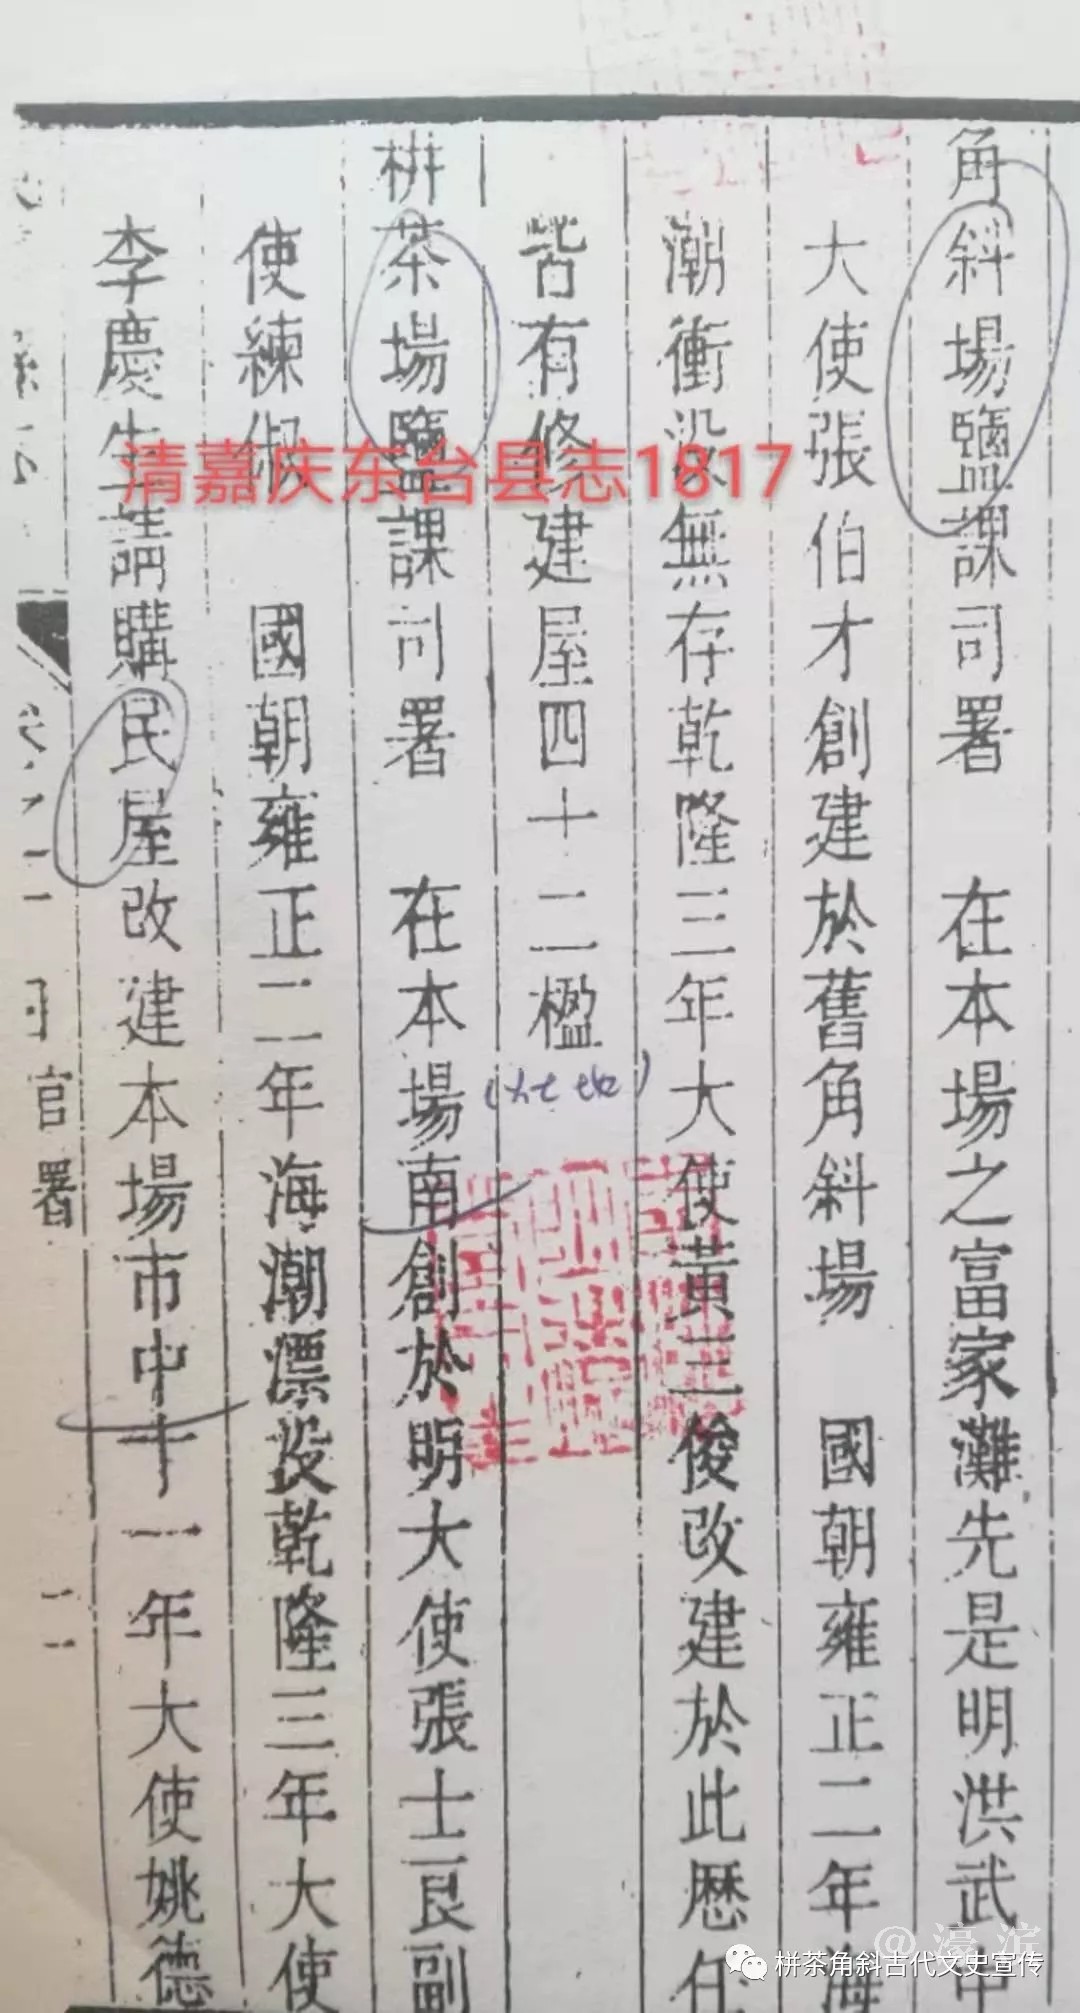 角斜場鹽課司署　在本場之富家灘先是明洪武中
大使張伯才創建於舊角斜場　國朝雍正二年海
潮衝沒無存乾隆三年大使黃三俊改建於此歷任
皆有修建屋四十二楹
栟茶場鹽課司署　在本場南創於明大使張士良副
使練俶　國朝雍正二年海潮漂没乾隆三年大使
李慶生請購民屋改建本場市中十一年大使姚德
官署
二
清嘉庆东台县志1817
@濠滨
栟茶角斜古代文史宣传